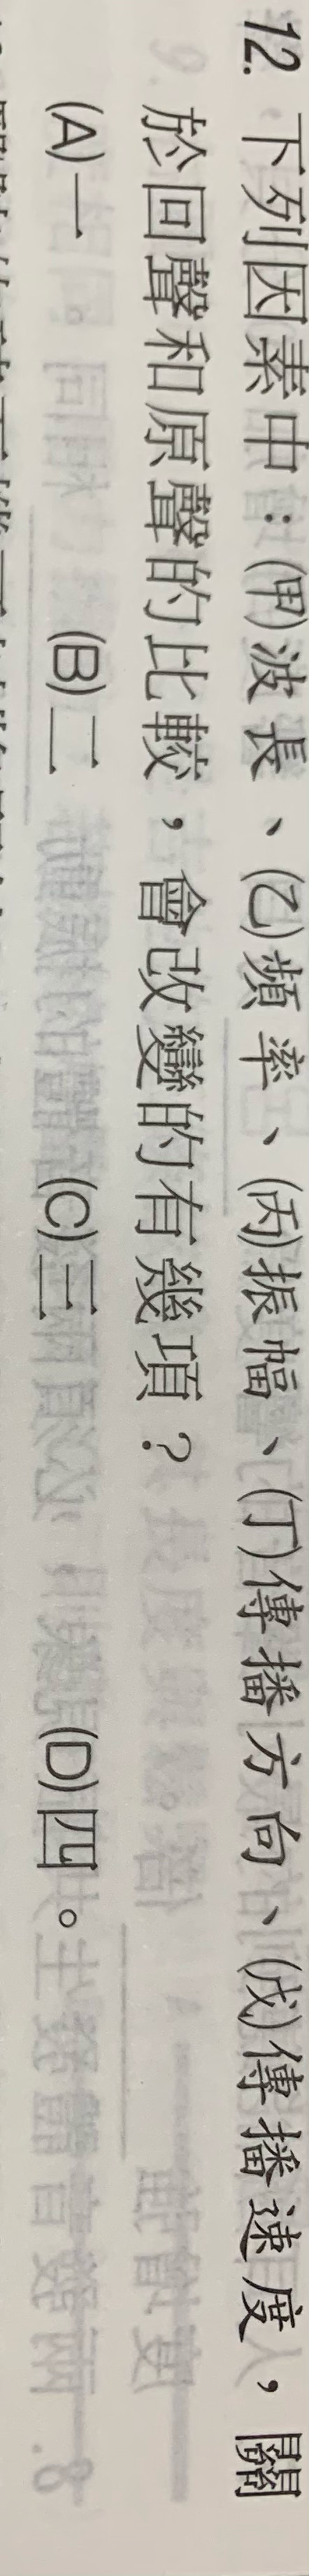 12. 下列因素中：(甲)波長、(乙)頻率、(丙)振幅、(丁)傳播方向、(戊)傳播速度，關
於回聲和原聲的比較，會改變的有幾項？
(A)一 (B)二 (C)三 (D)四。